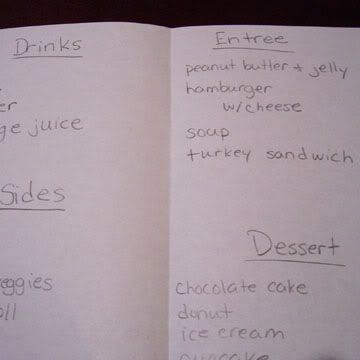 Drinks
juice
Sides
Entree
peanut butter + jelly
hamburger
w/cheese
soup
turkey sandwich
Dessert
chocolate cake
donut
ice cream
cupcake